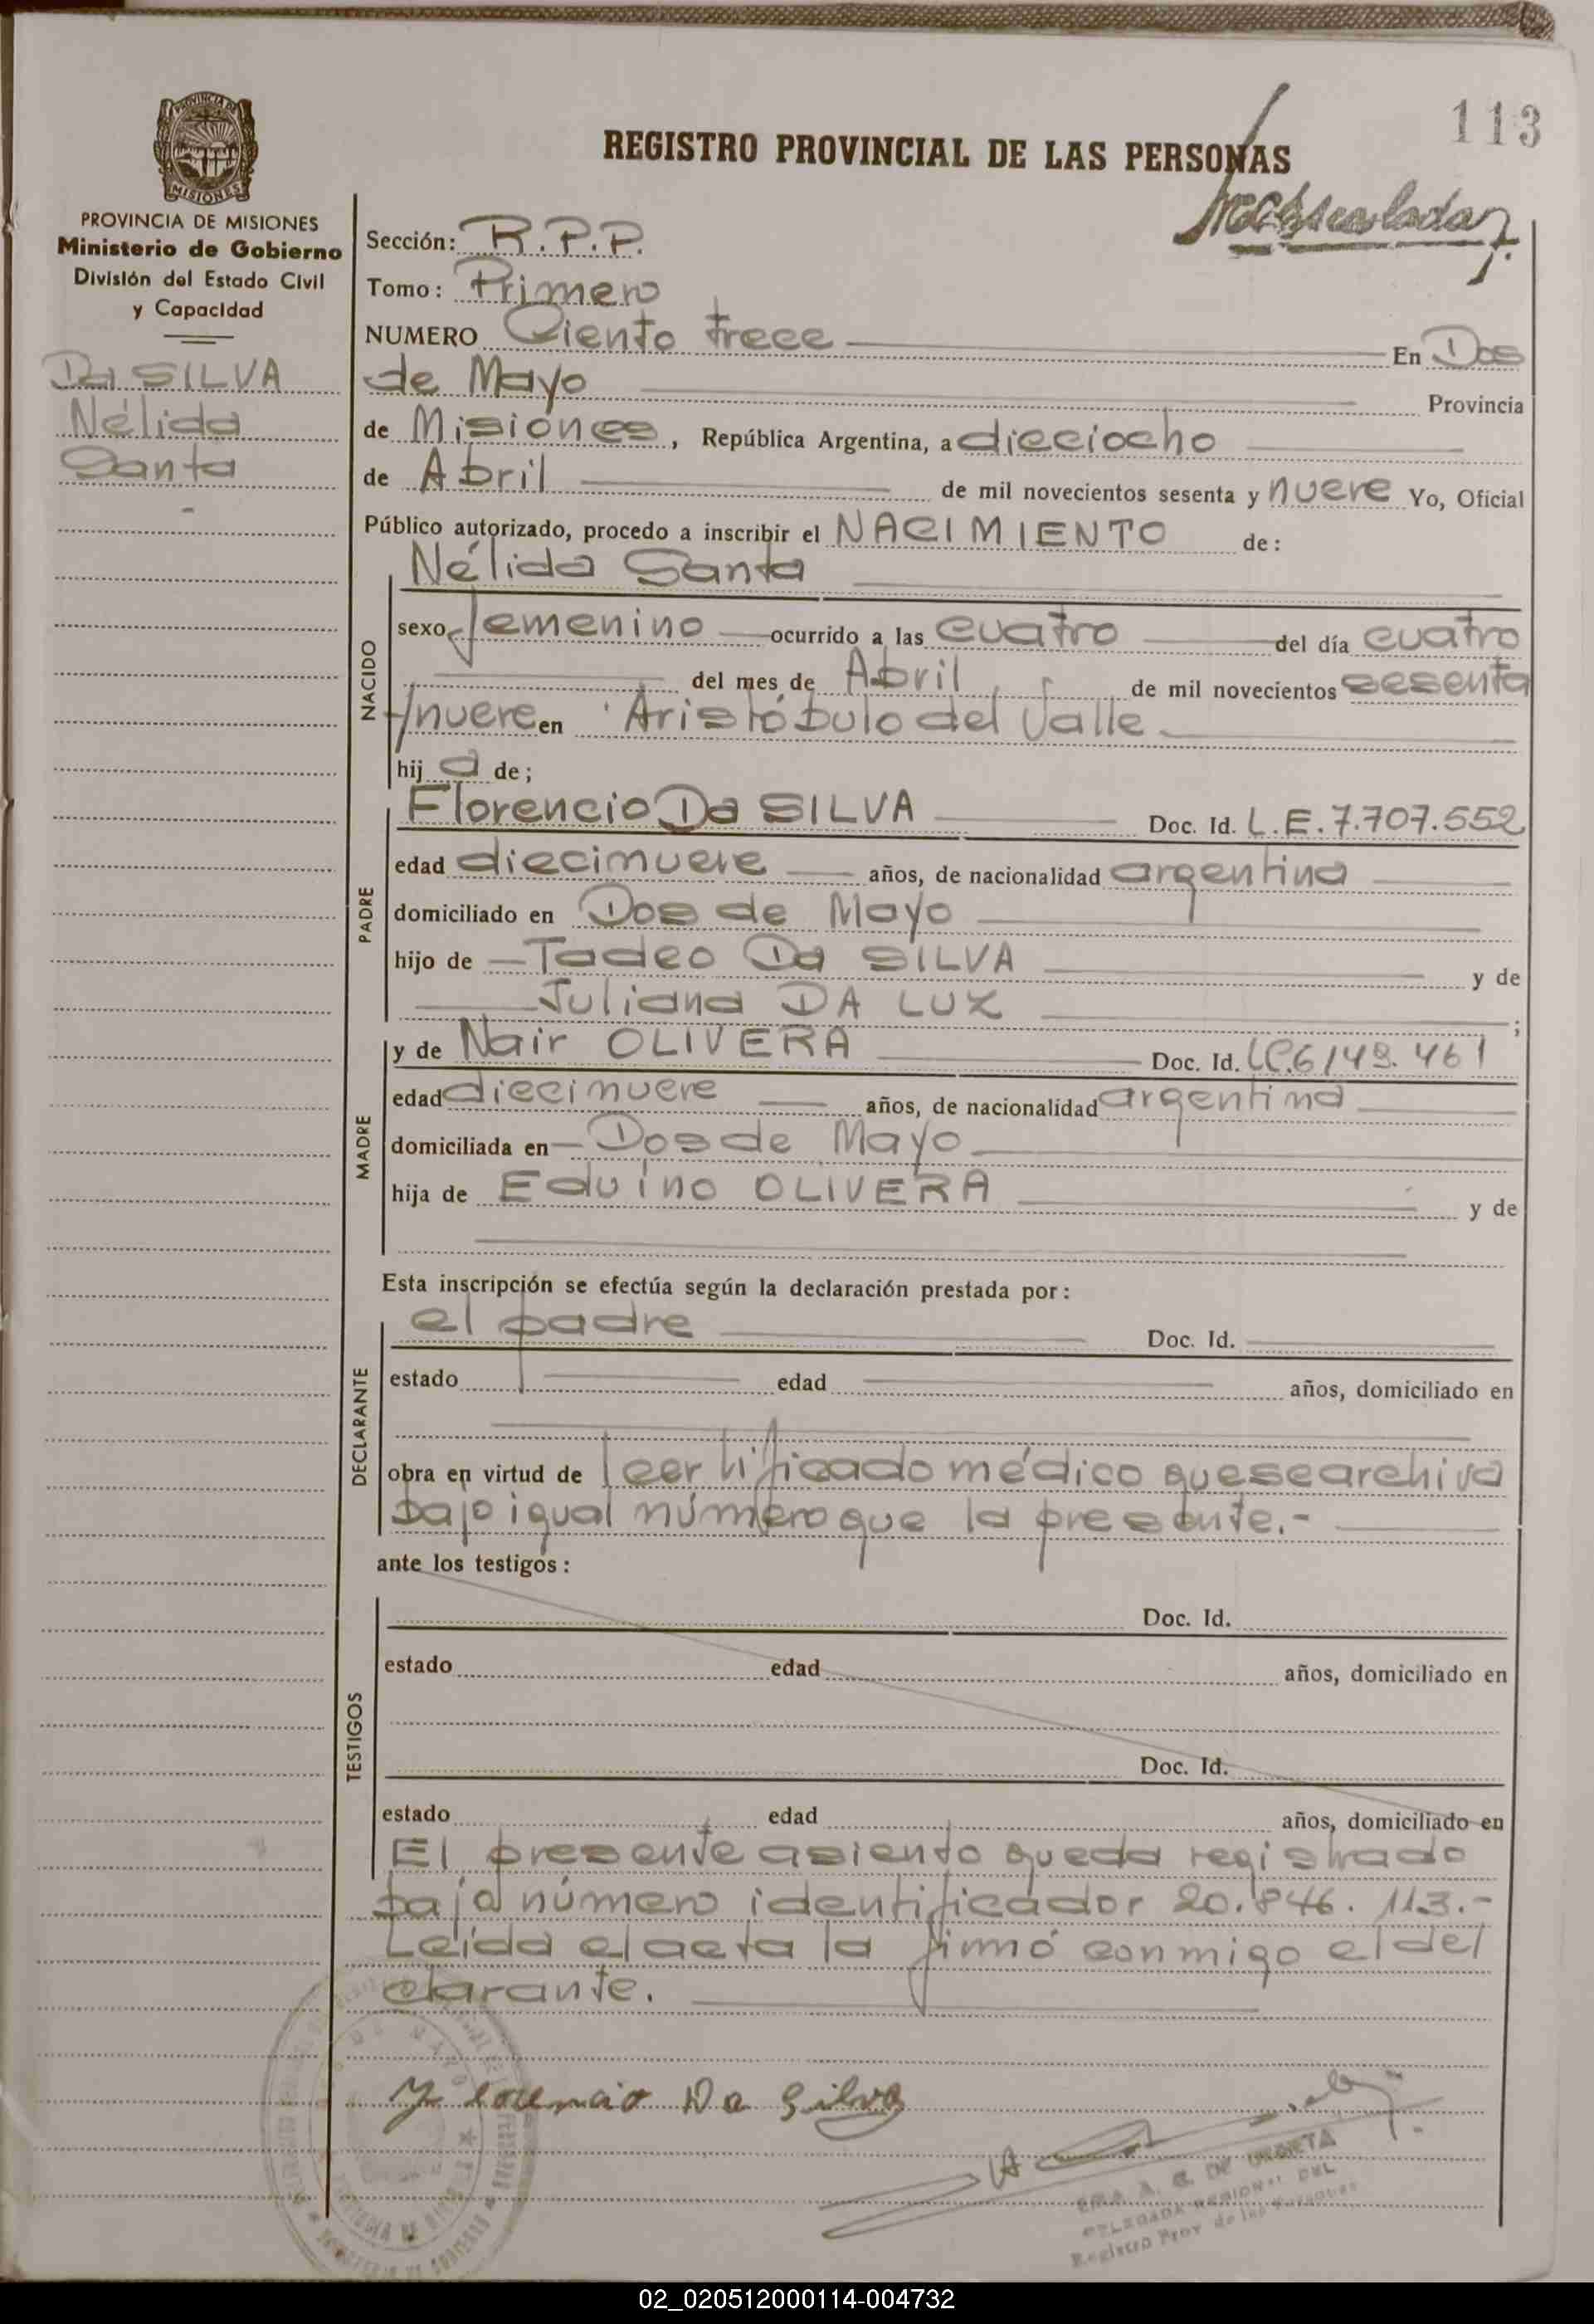 113
REGISTRO PROVINCIAL DE LAS PERSONAS
PROVINCIA DE MISIONES
Ministerio de Gobierno
División del Estado Civil
y Capacidad
Da SILVA
Nélida
Santa
Sección: R.P.P.
Tomo: Primero
NUMERO Ciento trece En Dos
de Mayo Provincia
de Misiones, República Argentina, a dieciocho
de Abril de mil novecientos sesenta y nueve Yo, Oficial
Público autorizado, procedo a inscribir el NACIMIENTO de:
NACIDO
Nélida Santa
sexo femenino ocurrido a las cuatro del día cuatro
del mes de Abril de mil novecientos sesenta
y nueve en Aristóbulo del Valle
hij a de;
PADRE
Florencio Da SILVA Doc. Id. L.E. 7.707.552
edad diecinueve años, de nacionalidad argentina
domiciliado en Dos de Mayo
hijo de Tadeo Da SILVA y de
Juliana DA LUZ ;
MADRE
y de Nair OLIVERA Doc. Id. LC.6149.461
edad diecinueve años, de nacionalidad argentina
domiciliada en Dos de Mayo
hija de Eduino OLIVERA y de
Esta inscripción se efectúa según la declaración prestada por:
DECLARANTE
el padre Doc. Id.
estado edad años, domiciliado en
obra en virtud de certificado médico que se archiva
bajo igual número que la presente.-
ante los testigos:
TESTIGOS
Doc. Id.
estado edad años, domiciliado en
Doc. Id.
estado edad años, domiciliado en
El presente asiento queda registrado
bajo número identificador 20.846.113.-
Leída el acta la firmó conmigo el del
clarante.
Florencio Da Silva
SRA. A. G. DE
DELEGADA REGIONAL DEL
Registro Prov de las Personas
02_020512000114-004732